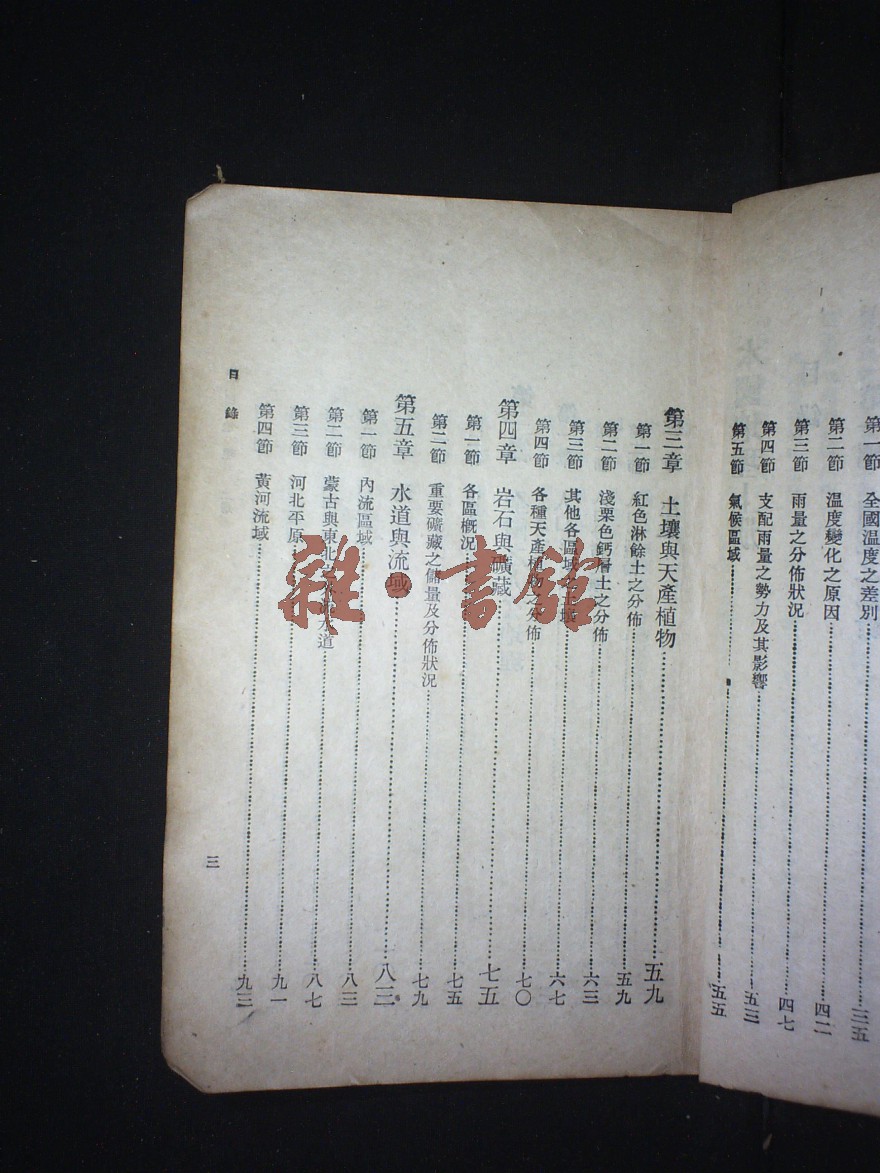 第一節 全國溫度之差別 三五
第二節 溫度變化之原因 四二
第三節 雨量之分佈狀況 四七
第四節 支配雨量之勢力及其影響 五三
第五節 氣候區域 五五
第三章 土壤與天產植物 五九
第一節 紅色淋餘土之分佈 五九
第二節 淺栗色鈣層土之分佈 六三
第三節 其他各區域之土 六七
第四節 各種天產植物之分佈 七〇
第四章 岩石與礦藏 七五
第一節 各區概況 七五
第二節 重要礦藏之儲量及分佈狀況 七九
第五章 水道與流域 八三
第一節 內流區域 八三
第二節 蒙古與東北 水道 八七
第三節 河北平原 九一
第四節 黃河流域 九三
目錄
三
雜·書館